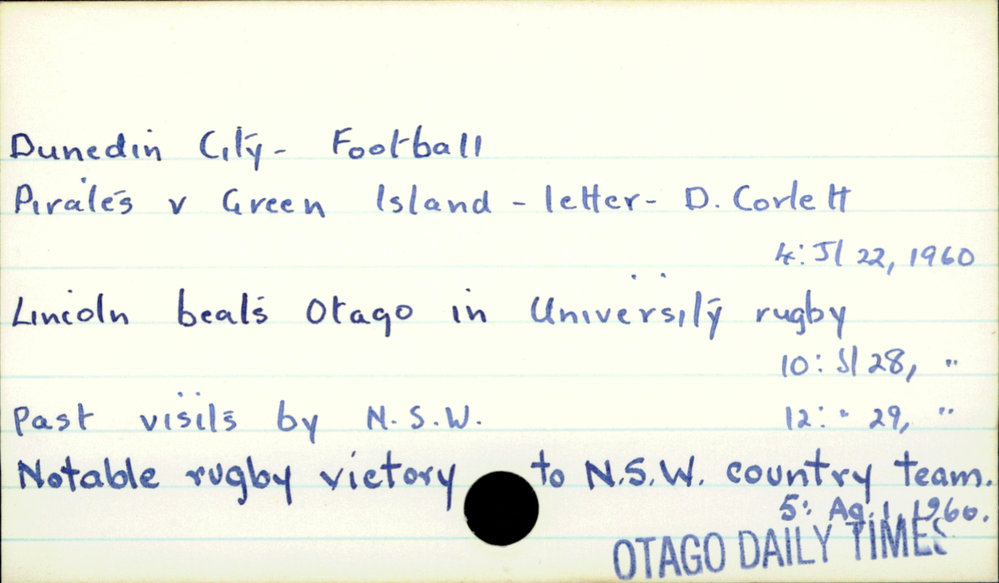 Dunedin City - Football
Pirates v Green Island - letter - D. Corlett
4: Jl 22, 1960
Lincoln beats Otago in University rugby
10: Jl 28, "
Past visits by N.S.W.
12: " 29, "
Notable rugby victory to N.S.W. country team.
5: Ag. 1, 1960.
OTAGO DAILY TIMES